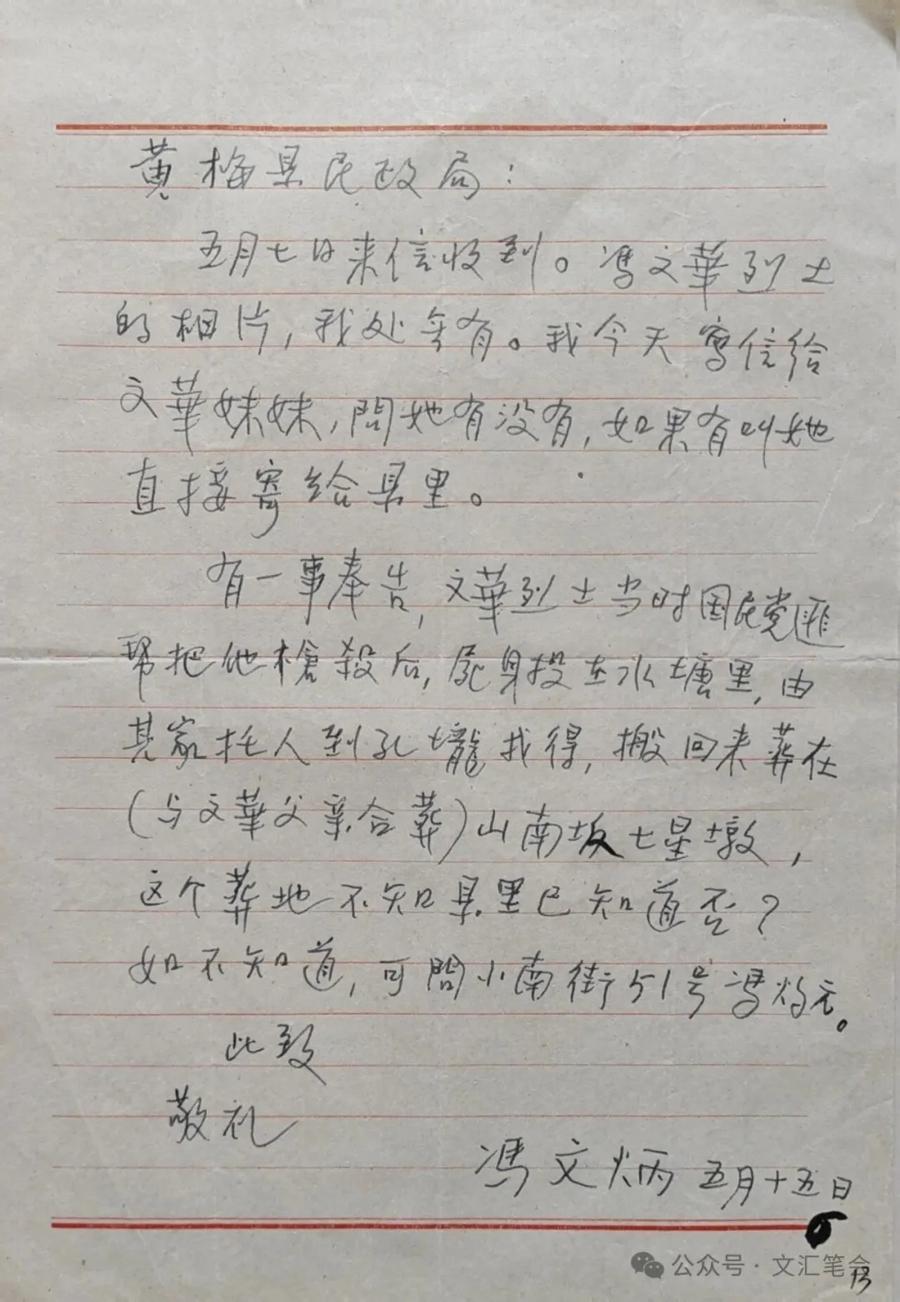 黄梅县民政局：
五月七日来信收到。冯文華烈士
的相片，我处無有。我今天寫信给
文華妹妹，問她有没有，如果有叫她
直接寄给县里。
有一事奉告，文華烈士当时国民党匪
帮把他槍殺后，屍身投在水塘里，由
其家托人到孔壠找得，搬回来葬在
（与文華父亲合葬）山南坂七星墩，
这个葬地不知县里已知道否？
如不知道，可問小南街51号冯
此致
敬礼
冯文炳 五月十五日
公众号·文汇笔会
13